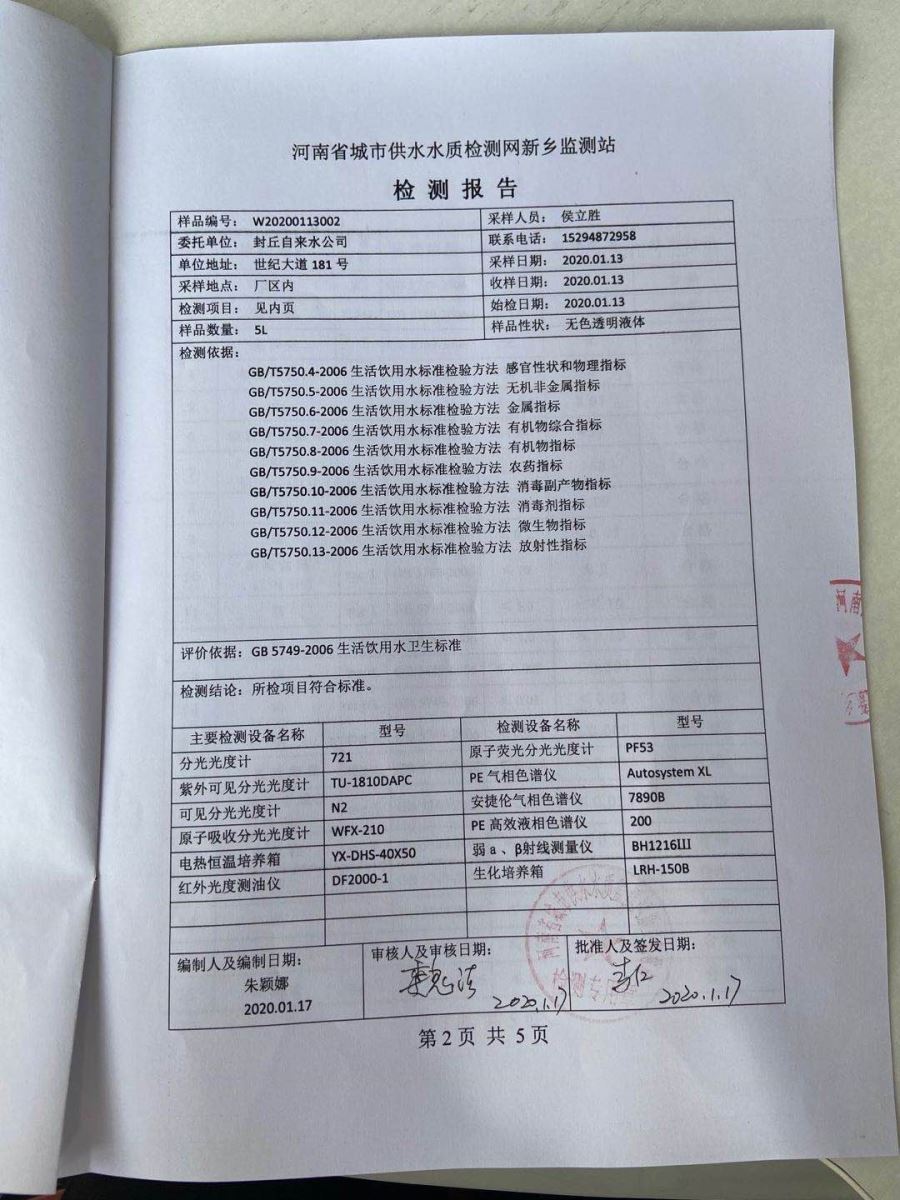 河南省城市供水水质检测网新乡监测站
检测报告
样品编号： W20200113002 采样人员： 侯立胜
委托单位： 封丘自来水公司 联系电话： 15294872958
单位地址： 世纪大道 181 号 采样日期： 2020.01.13
采样地点： 厂区内 收样日期： 2020.01.13
检测项目： 见内页 始检日期： 2020.01.13
样品数量： 5L 样品性状： 无色透明液体
检测依据：
GB/T5750.4-2006 生活饮用水标准检验方法 感官性状和物理指标
GB/T5750.5-2006 生活饮用水标准检验方法 无机非金属指标
GB/T5750.6-2006 生活饮用水标准检验方法 金属指标
GB/T5750.7-2006 生活饮用水标准检验方法 有机物综合指标
GB/T5750.8-2006 生活饮用水标准检验方法 有机物指标
GB/T5750.9-2006 生活饮用水标准检验方法 农药指标
GB/T5750.10-2006 生活饮用水标准检验方法 消毒副产物指标
GB/T5750.11-2006 生活饮用水标准检验方法 消毒剂指标
GB/T5750.12-2006 生活饮用水标准检验方法 微生物指标
GB/T5750.13-2006 生活饮用水标准检验方法 放射性指标
河南
评价依据：GB 5749-2006 生活饮用水卫生标准
检测结论：所检项目符合标准。
主要检测设备名称 型号 检测设备名称 型号
分光光度计 721 原子荧光分光光度计 PF53
紫外可见分光光度计 TU-1810DAPC PE 气相色谱仪 Autosystem XL
可见分光光度计 N2 安捷伦气相色谱仪 7890B
原子吸收分光光度计 WFX-210 PE 高效液相色谱仪 200
电热恒温培养箱 YX-DHS-40X50 弱 a 、β射线测量仪 BH1216Ⅲ
红外光度测油仪 DF2000-1 生化培养箱 LRH-150B
编制人及编制日期： 审核人及审核日期： 批准人及签发日期：
朱颖娜
2020.01.17 2020.1.17 2020.1.17
第 2 页 共 5 页